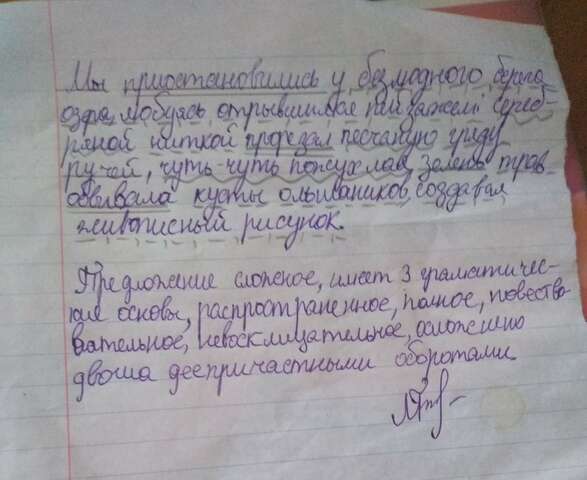 Мы приостановились у безмодного берега
озера, мобуясь отрывшимся пейзажем: сереб-
ряной ниткой прорезал песчаную гряду
ручей, чуть-чуть пожухлая зелень трав
обвивала кусты ольшаников, создавая
живописный рисунок.
Предложение сложное, имеет 3 граматичес-
кие основы, распространенное, полное, повество
вательное, невосклицательное, осложнено
двоша деепричастными оборотами.